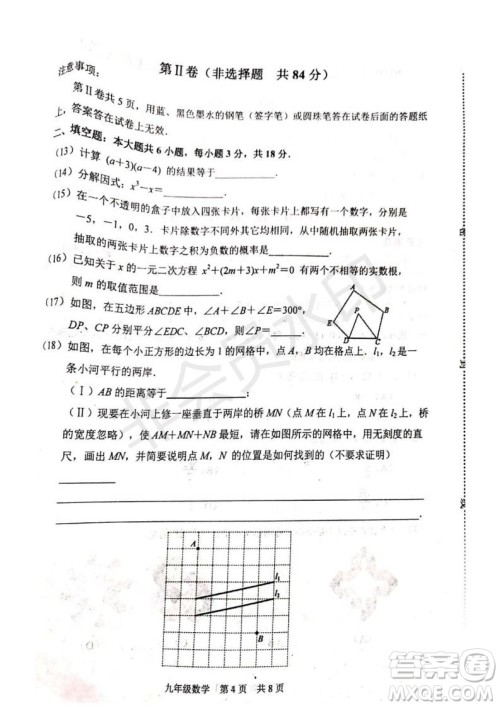 第Ⅱ卷（非选择题 共84分）
注意事项：
第Ⅱ卷共5页，用蓝、黑色墨水的钢笔（签字笔）或圆珠笔答在试卷后面的答题纸
上，答案答在试卷上无效．
二、填空题：本大题共6小题，每小题3分，共18分．
（13）计算 (a+3)(a−4) 的结果等于
（14）分解因式：x³−x=
（15）在一个不透明的盒子中放入四张卡片，每张卡片上都写有一个数字，分别是
−5，−1，0，3．卡片除数字不同外其它均相同，从中随机抽取两张卡片，
抽取的两张卡片上数字之积为负数的概率是
（16）已知关于 x 的一元二次方程 x²+(2m+3)x+m²=0 有两个不相等的实数根，
则 m 的取值范围是
（17）如图，在五边形 ABCDE 中，∠A+∠B+∠E=300°，
DP、CP 分别平分∠EDC、∠BCD，则∠P=
A
B
P
E
D
C
（18）如图，在每个小正方形的边长为 1 的网格中，点 A、B 均在格点上．l₁、l₂是一
条小河平行的两岸．
（Ⅰ）AB 的距离等于
（Ⅱ）现要在小河上修一座垂直于两岸的桥 MN（点 M 在 l₁上，点 N 在 l₂上，桥
的宽度忽略），使 AM+MN+NB 最短，请在如图所示的网格中，用无刻度的直
尺，画出 MN，并简要说明点 M，N 的位置是如何找到的（不要求证明）
A
l₁
l₂
B
九年级数学 第4页 共8页
非会员水印
答案圈